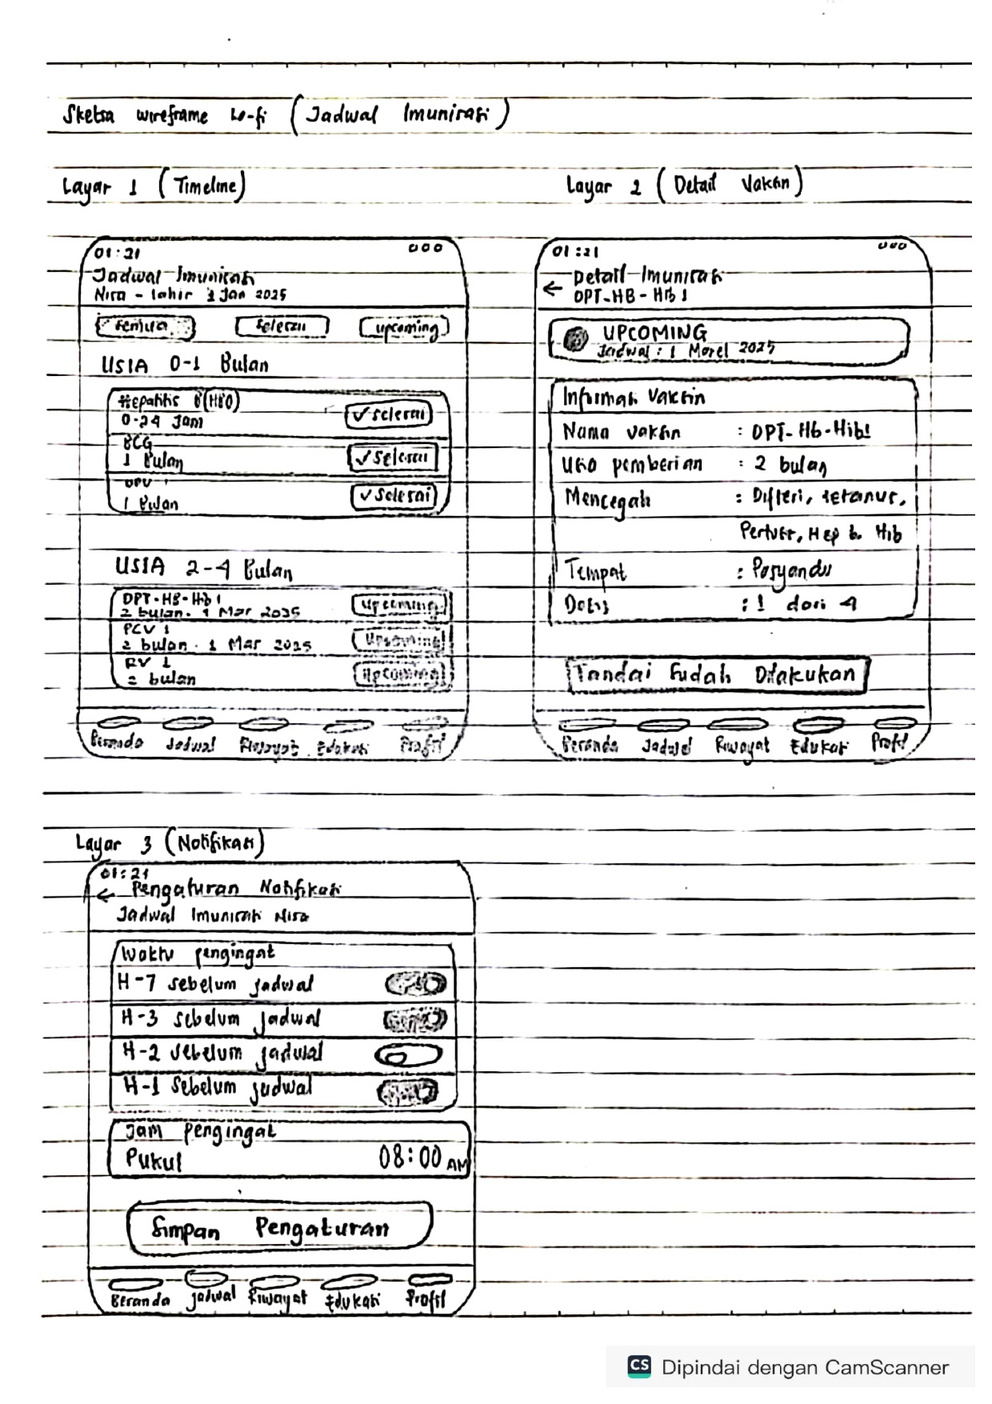 Sketsa wireframe Lo-fi (Jadwal Imunisasi)
Layar 1 (Timeline)
01:21
Jadwal Imunisasi
Nisa - lahir 1 Jan 2025
Semua
Selesai
upcoming
USIA 0-1 Bulan
Hepatitis B(HB0)
0-24 Jam
✓ Selesai
BCG
1 Bulan
✓ Selesai
OPV 1
1 Bulan
✓ Selesai
USIA 2-4 Bulan
DPT-HB-Hib 1
2 bulan. 1 Mar 2025
Upcoming
PCV 1
2 bulan. 1 Mar 2025
Upcoming
RV 1
2 bulan
Upcoming
Beranda Jadwal Riwayat Edukasi Profil
Layar 2 (Detail Vaksin)
01:21
← Detail Imunisasi
DPT-HB-Hib 1
UPCOMING
Jadwal : 1 Maret 2025
Informasi Vaksin
Nama vaksin : DPT-Hb-Hib1
Usia pemberian : 2 bulan
Mencegah : Difteri, tetanus,
Pertusis, Hep b. Hib
Tempat : Posyandu
Dosis : 1 dari 4
Tandai Sudah Dilakukan
Beranda Jadwal Riwayat Edukasi Profil
Layar 3 (Notifikasi)
01:21
← Pengaturan Notifikasi
Jadwal Imunisasi Nisa
Waktu pengingat
H-7 sebelum jadwal
H-3 sebelum jadwal
H-2 sebelum jadwal
H-1 Sebelum jadwal
Jam pengingat
Pukul 08:00 AM
Simpan Pengaturan
Beranda jadwal Riwayat Edukasi Profil
CS Dipindai dengan CamScanner